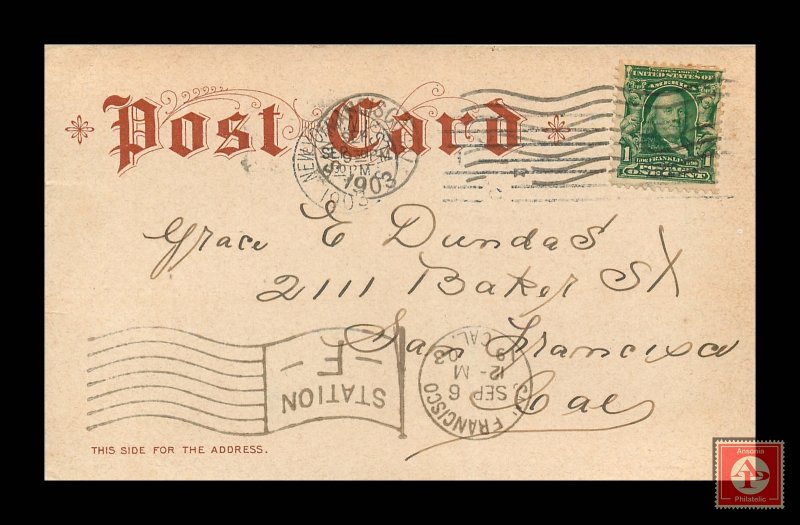 Post Card
SERIES 1902
UNITED STATES OF
AMERICA
1 FRANKLIN 1
POSTAGE
ONE CENT
NEW
1903
1903
Grace E Dundas
2111 Baker St
San Francisco
Cal
STATION
-F-
SAN FRANCISCO
CAL.
SEP 6
12-M
03
THIS SIDE FOR THE ADDRESS.
Ansonia
AP
Philatelic